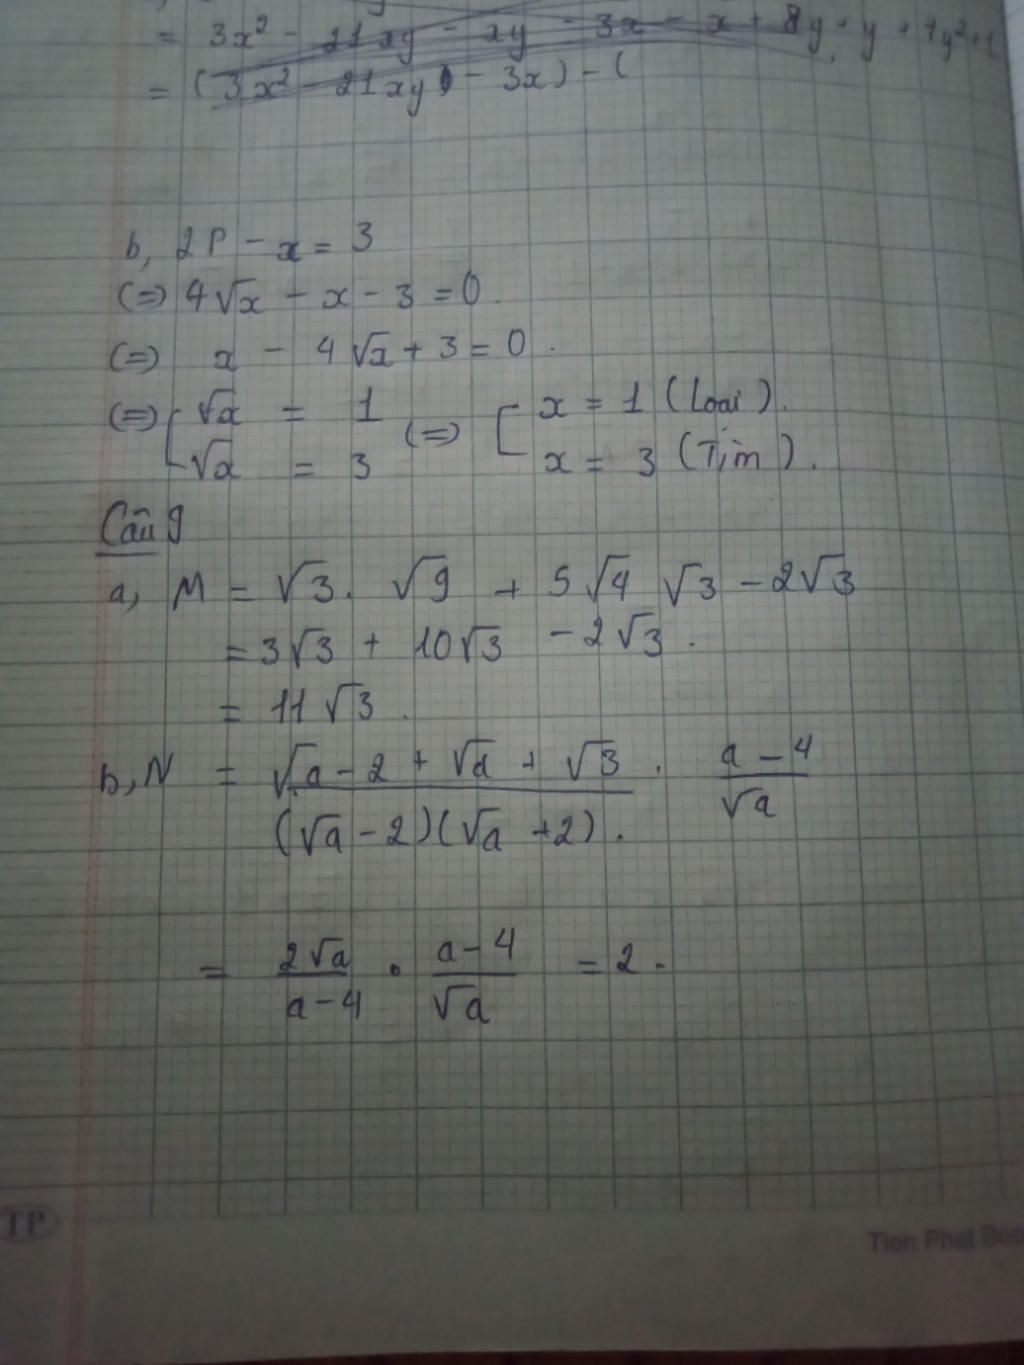 = 3x² - 21xy - xy - 3x - x + 8y + y + 7y² + 1
= (3x² - 21xy) - 3x) - (
b, 2P - x = 3
(=) 4√x - x - 3 = 0.
(=) x - 4√x + 3 = 0.
(=) [ √x = 1 (=) [ x = 1 (Loại).
√x = 3 x = 3 (T/m).
Câu 9
a, M = √3. √9 + 5√4 √3 - 2√3
= 3√3 + 10√3 - 2√3.
= 11√3.
b, N = (√a - 2 + √a + √3) / ((√a - 2)(√a + 2)) . (a - 4) / √a
= 2√a / (a - 4) . (a - 4) / √a = 2.
TP
Tien Phat